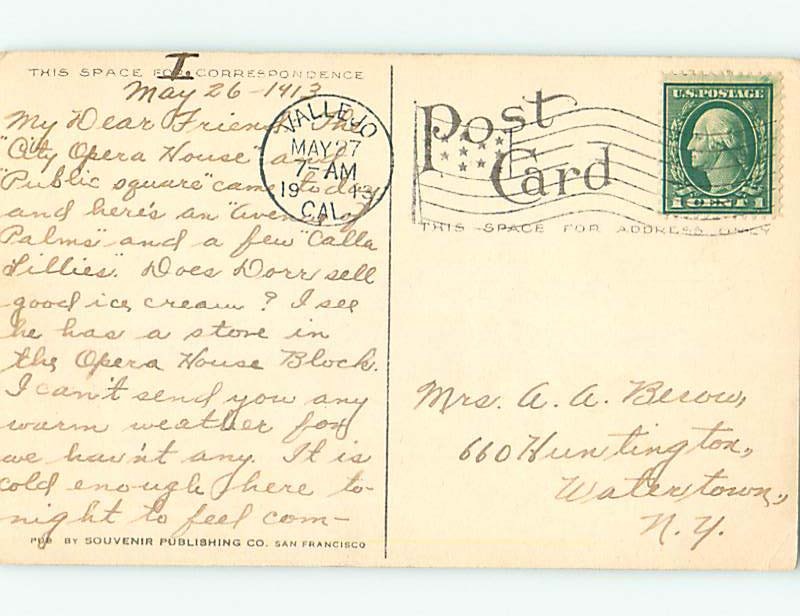 I
THIS SPACE FOR CORRESPONDENCE
May 26-1913
My Dear Friend The
"City Opera House" and
"Public square" came to day
and here's an "Avenue of
Palms" and a few "Calla
Lillies". Does Dorr sell
good ice cream? I see
he has a store in
the Opera House Block.
I can't send you any
warm weather for
we hav'nt any. It is
cold enough here to-
night to feel com-
PUB BY SOUVENIR PUBLISHING CO. SAN FRANCISCO
VALLEJO
MAY 27
7-AM
1913
CAL.
Post
Card
THIS SPACE FOR ADDRESS ONLY
U.S. POSTAGE
1 CENT 1
Mrs. A. A. Besow,
660 Huntington,
Watertown,
N.Y.